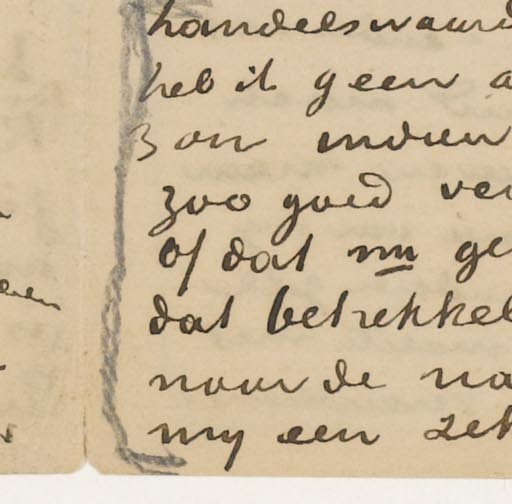 handelswaard
heb ik geen a
zou indien
zoo goed ver
of dat nu ge
dat betrekkel
naar de na
my een zek